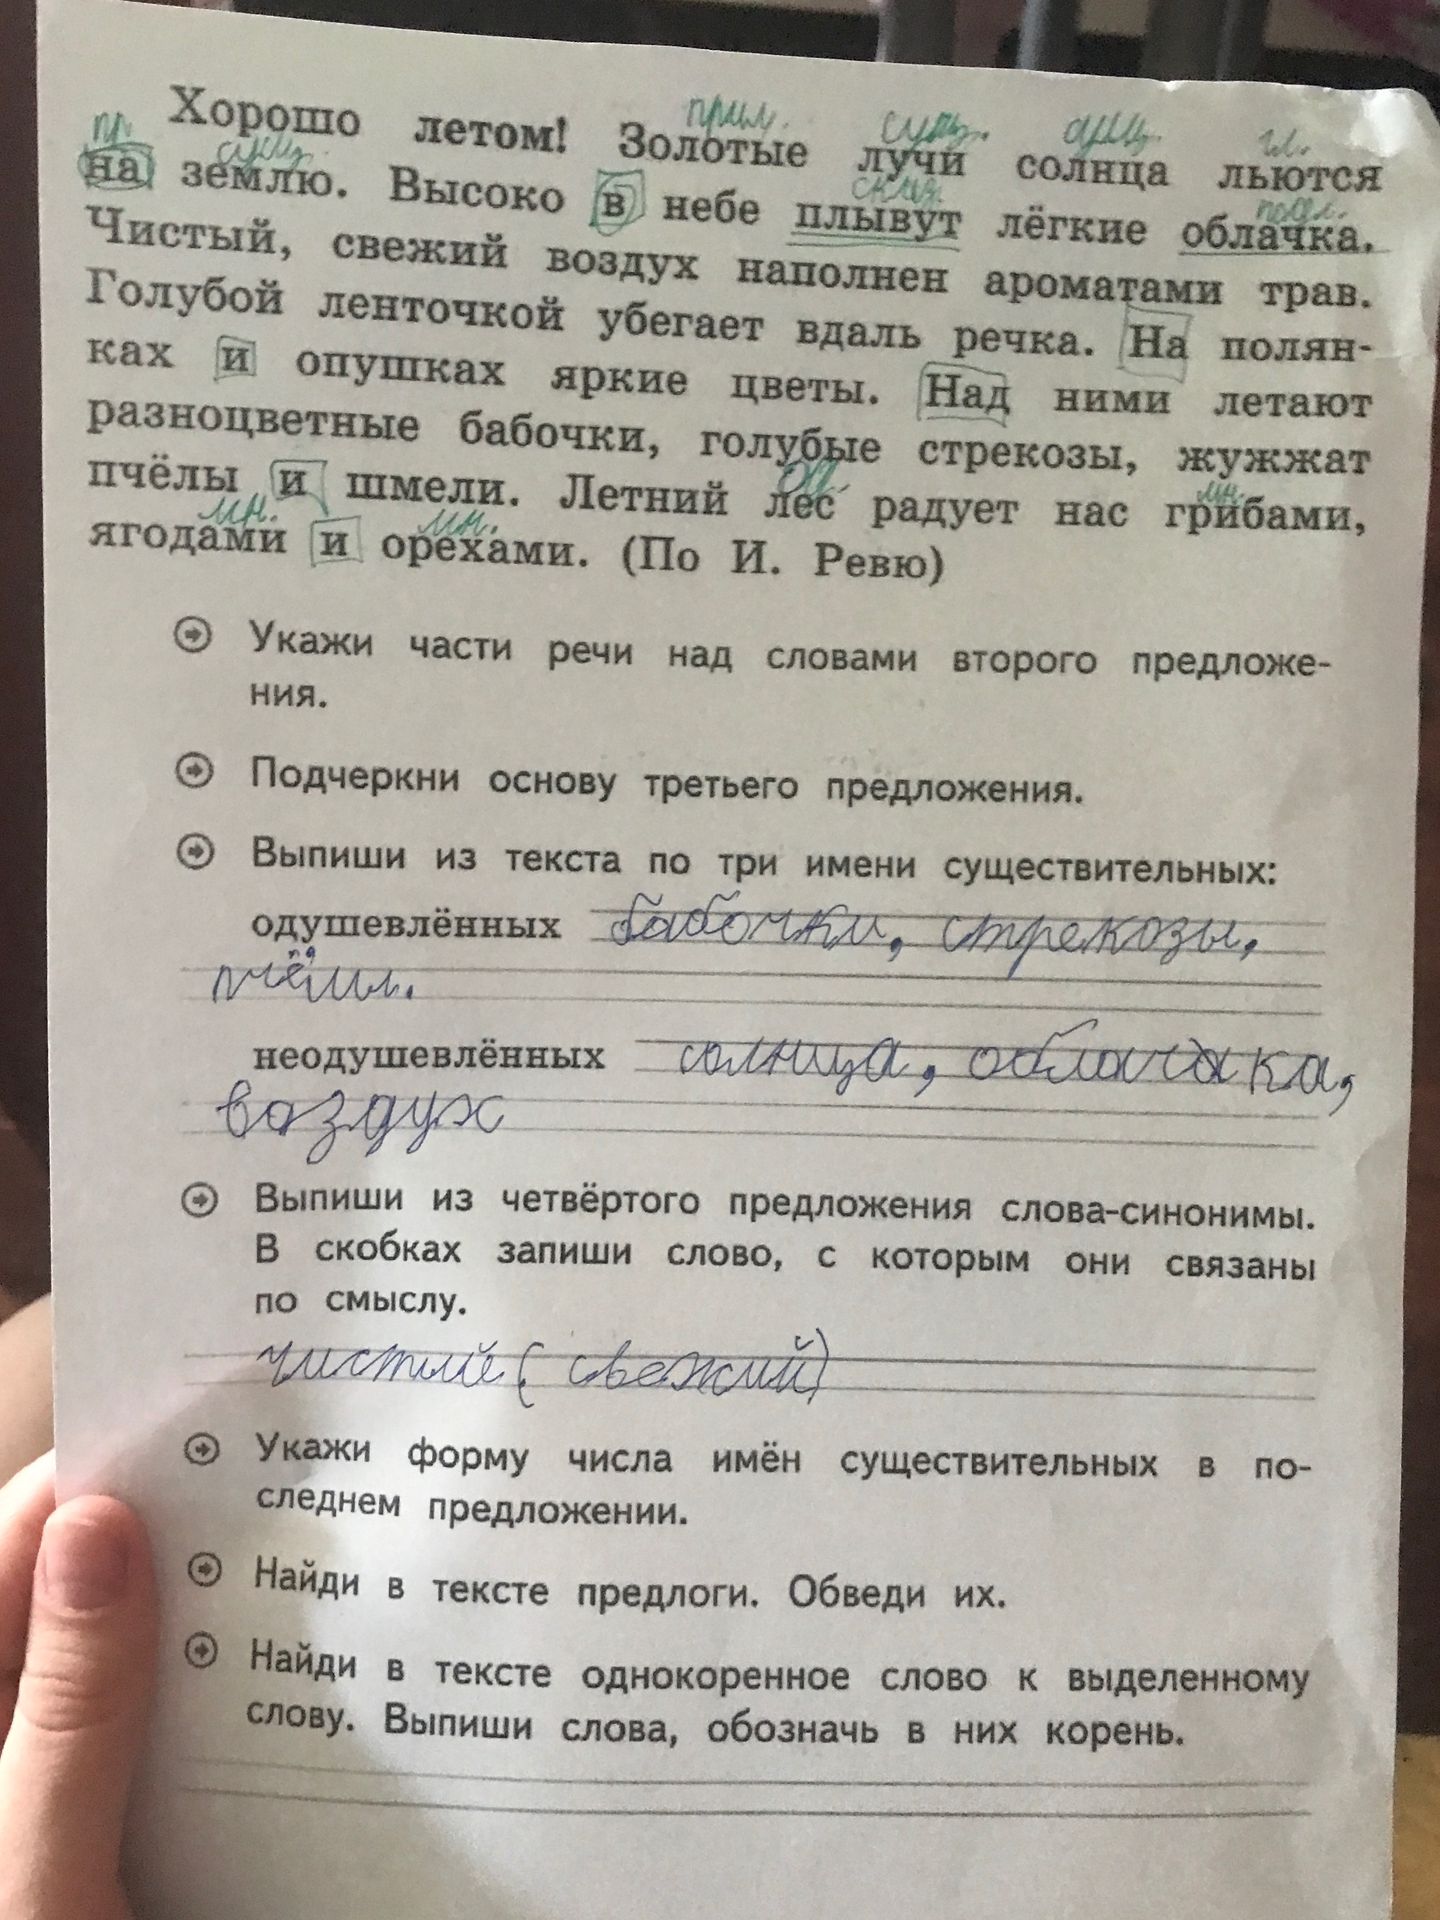 прил. сущ. сущ. гл.
Хорошо летом! Золотые лучи солнца льются
пр. сущ.
на землю. Высоко в небе плывут лёгкие облачка.
Чистый, свежий воздух наполнен ароматами трав.
Голубой ленточкой убегает вдаль речка. На полян-
ках и опушках яркие цветы. Над ними летают
разноцветные бабочки, голубые стрекозы, жужжат
ед. мн.
пчёлы и шмели. Летний лес радует нас грибами,
мн. мн.
ягодами и орехами. (По И. Ревю)
Укажи части речи над словами второго предложе-
ния.
Подчеркни основу третьего предложения.
Выпиши из текста по три имени существительных:
одушевлённых бабочки, стрекозы,
пчёлы.
неодушевлённых солнца, облачка,
воздух
Выпиши из четвёртого предложения слова-синонимы.
В скобках запиши слово, с которым они связаны
по смыслу.
чистый (свежий)
Укажи форму числа имён существительных в по-
следнем предложении.
Найди в тексте предлоги. Обведи их.
Найди в тексте однокоренное слово к выделенному
слову. Выпиши слова, обозначь в них корень.